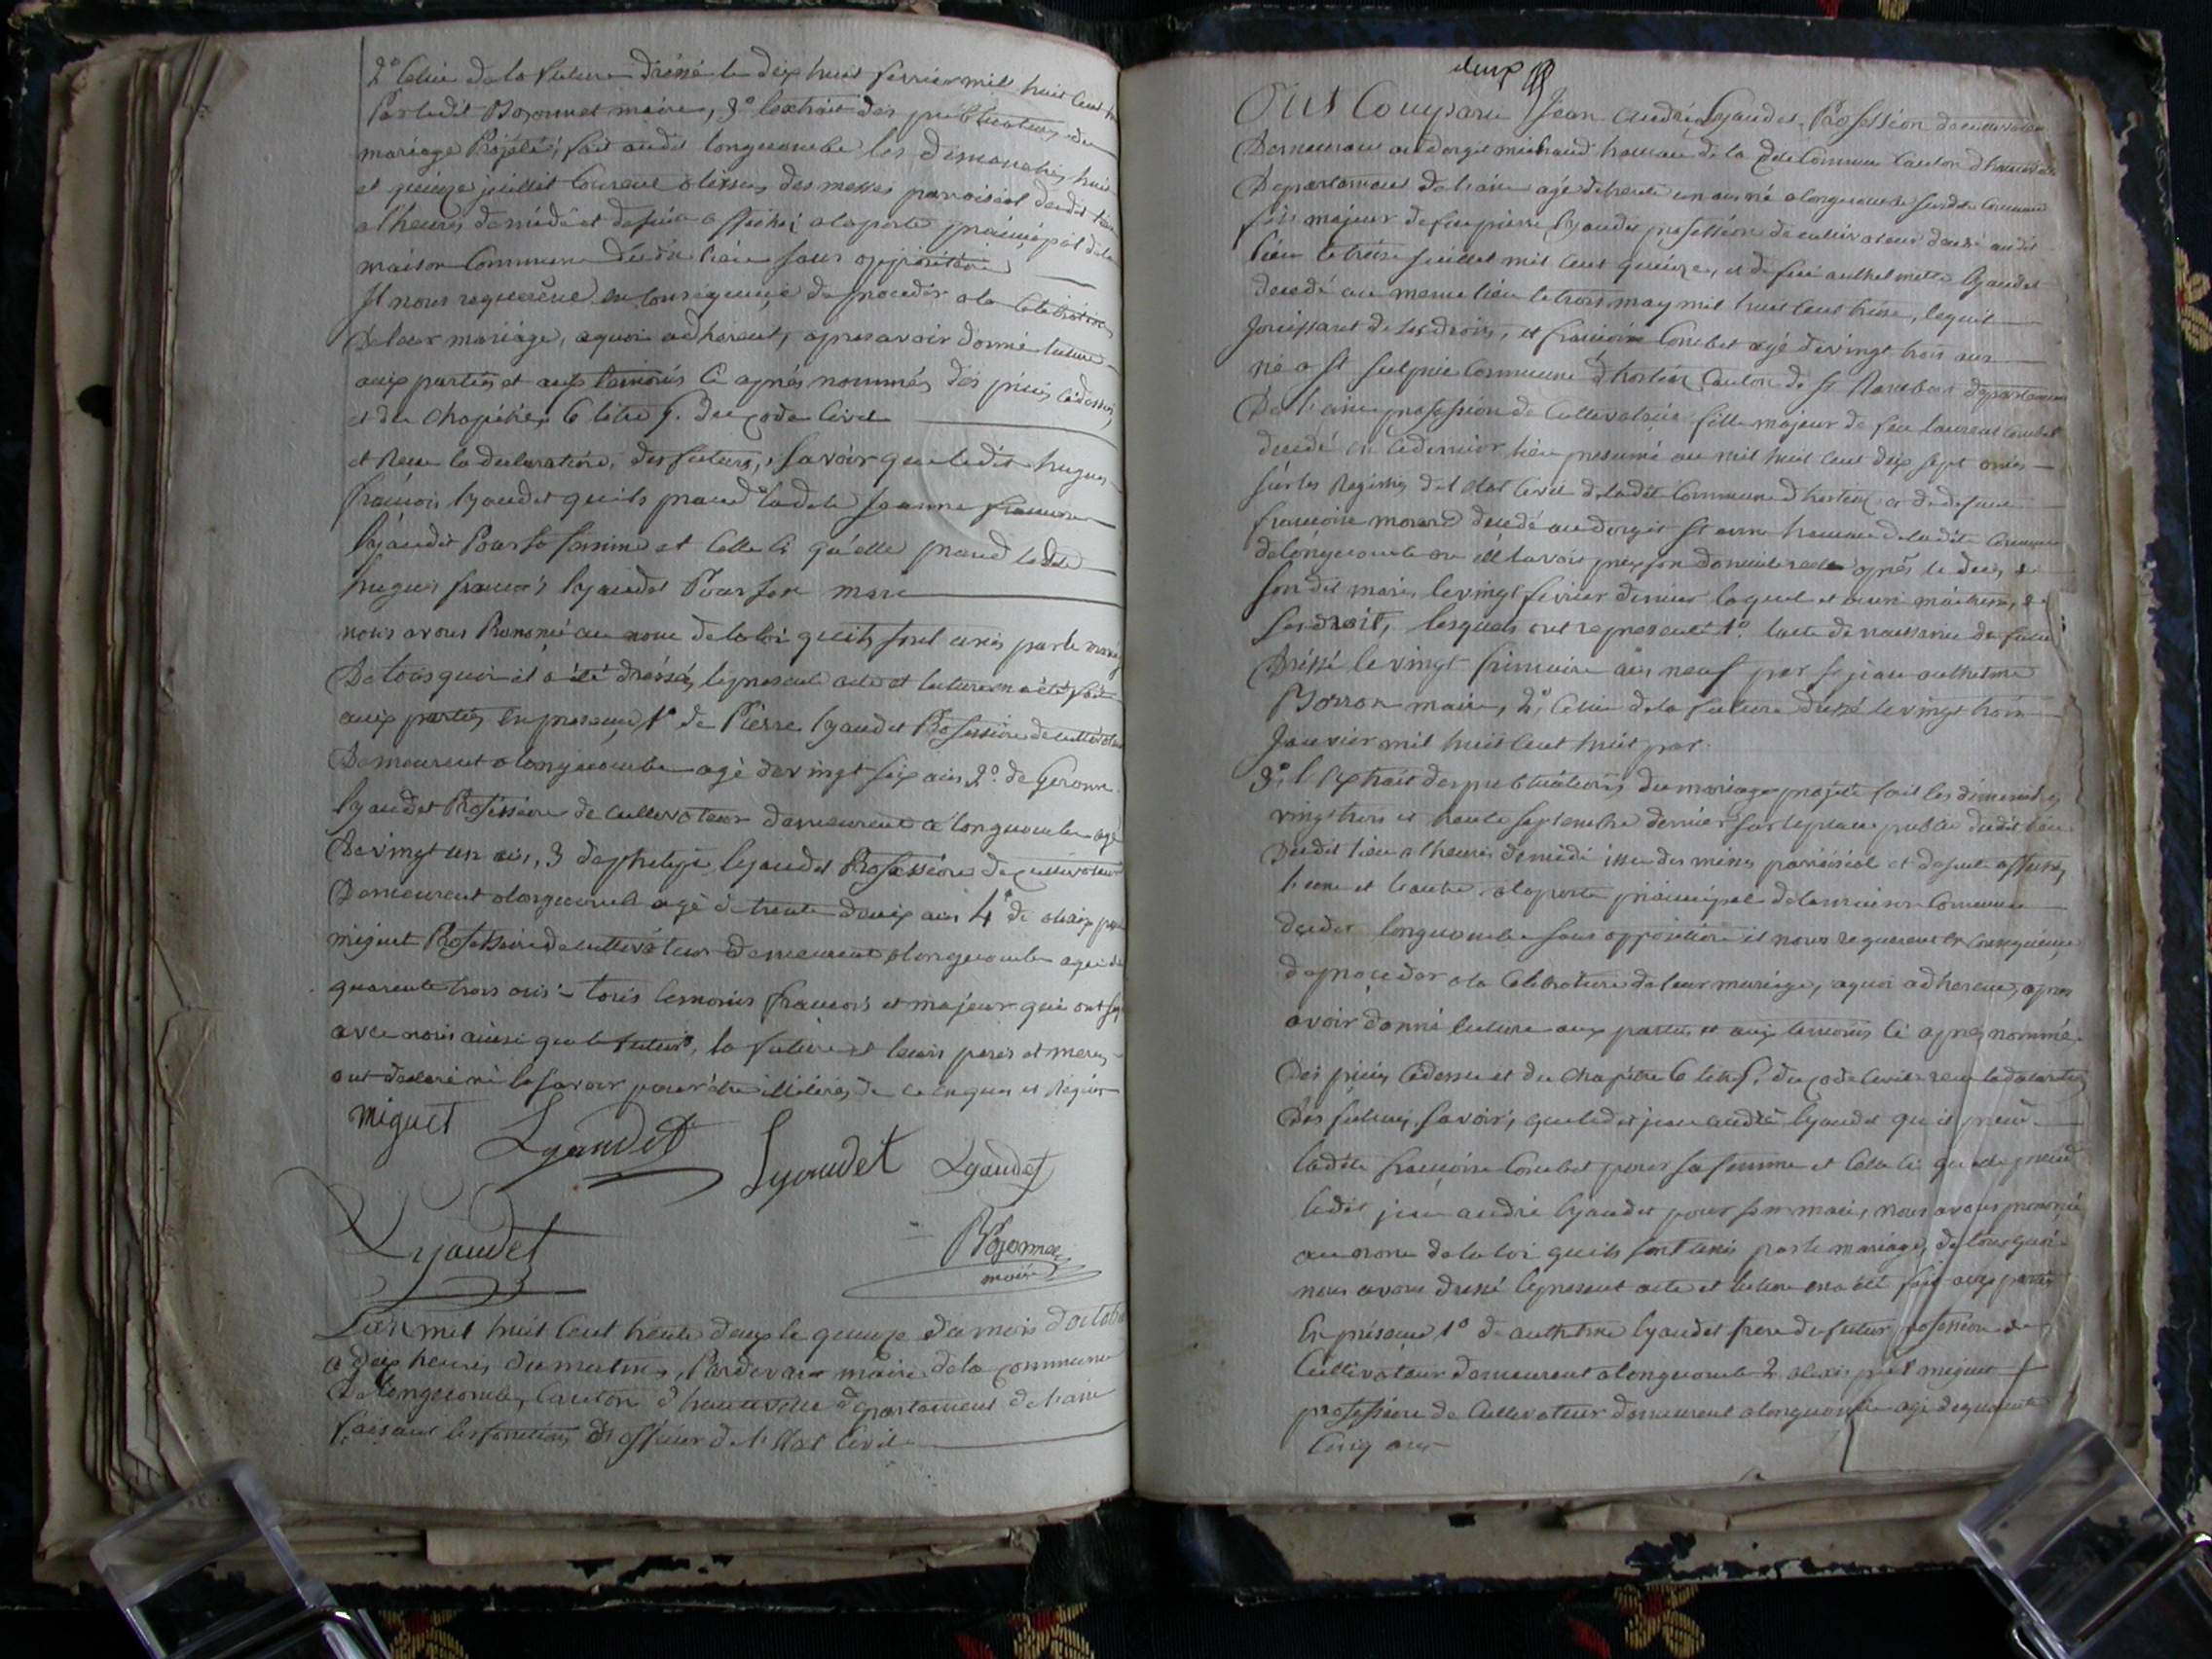 2° Celui de la future dréssé le dix huit fevrier mil huit cent
Par ledit Bozonnet maire, 3° l'extrait des publications du
mariage Projété, fait audit longecombe les dimanches huit
et quinze juillet courant a lissue des messes paroissial dudit lieu
a l'heure de midi et de suite affiché a la porte principal de la
maison Commune dudit lieu sans opposition
Il nous requerene en conséquence de proceder a la celebration
De leur mariage, a quoi adherant, apres avoir donné lecture
aux parties et aux temoins ci aprés nommés des pieces cidessus,
et du chapitre 6 titre 5. du code civil
et Recu la declaration, des futurs, savoir que ledit hugues
françois lyaudet quils prend ladite Jeanne françoise
lyaudet Pour sa femme et celle ci qu'elle prend ledit
hugues françois lyaudet Pour son mari
nous avons Prononcé au nom de la loi quils sont unis par le mariage
De tous quoi il a été dréssé, le present acte et lecture en a été fait
aux parties en presence, 1° de Pierre lyaudet Profession de cultivateur
Demeurent a longecombe agé de vingt six ans 2°. de Gerome
lyaudet Profession de cultivateur demeurent a longecombe agé
De vingt un ans, 3 de philipe lyaudet Profession de cultivateur
Demeurent a longecombe agé de trente deux ans 4° de alexis
miguet Profession de cultivateur demeurent a longecombe agé de
quarente trois ans tous temoins françois et majeur qui ont
avec nous ainsi que le futur, la future et leurs peres et meres
ont declaré ne le savoir pour être illiterés de ce enquis et requis
miguet Lyaudet Lyaudet Lyaudet
Lyaudet Bozonnet
maire
L'an mil huit cent trente deux le quinze du mois d'octobre
a dix heures du matin, Pardevant maire de la commune
De longecombe, Canton d'hauteville departement de l'ain
faisant les fonctions d'officier de l'Etat Civil
deux
Ont Comparu Jean andré Lyaudet, Profession de cultivateur
Demeurant au dergit michaud hameau de la dite Commune Canton d'hauteville
Departement de l'ain agé de trente un ans né a longecombe susdite Commune
fils majeur de feu pierre lyaudet profession de cultivateur décédé audit
lieu le treise juillet mil cent quinze, et de feue anthelmette lyaudet
decedé au meme lieu le trois may mil huit cent treise, lequel
Jouissant de ses droits, et françoise Combet agé de vingt trois ans
né a St sulpice Commune d'hostiaz Canton de St Rambert departement
De l'ain profession de Cultivatrice fille majeur de feu laurent Combet
decedé en ce dernier lieu presumé au mil huit cent dix sept omis
sur les Registres de l'etat Civil de ladite Commune d'hostiaz et de defunte
françoise morard decedé au dergit St hameau de ladite Commune
de longecombe ou elle avoit pris son domicile reele aprés le deces de
son dit mari, le vingt fevrier dernier laquel et aussi maitresse de
ses droit, lesquels ont representé 1°. l'acte de naissance du futur
Dréssé le vingt frimaire an neuf par Sr jean anthelme
Borron maire, 2°, Celui de la future dréssé le vingt trois
Janvier mil huit cent huit par
3°, l'extrait des publications du mariage projeté fait les dimanches
vingt trois et trente septembre dernier sur la place public dudit lieu
Dudit lieu a l'heure de midi issue des messes paroissial et de suite affichés
l'une et l'autre a la porte principal de la maison Commune
dudit longecombe sans opposition il nous requerent en consequence
de proceder a la Celebration de leur mariage, a quoi adherent, apres
avoir donné lecture aux parties et aux temoins ci apres nommé
Des pieces cidessus et du chapitre 6 titre 5. du code Civil reçu la declaration
Des futurs, savoir, que ledit jean andré lyaudet qu il prend
ladite françoise Combet pour sa femme et celle ci quelle prend
ledit jean andré lyaudet pour son mari, nous avons prononcé
au nom de la loi quils sont unis par le mariage, de tous quoi
nous avons dréssé le present acte et lecture en a été fait aux parties
En présence 1° de anthelme lyaudet frere du futur profession de
Cultivateur demeurent a longecombe 2 alexis miguet
profession de Cultivateur demeurent a longecombe agé de quarante
Cinq ans